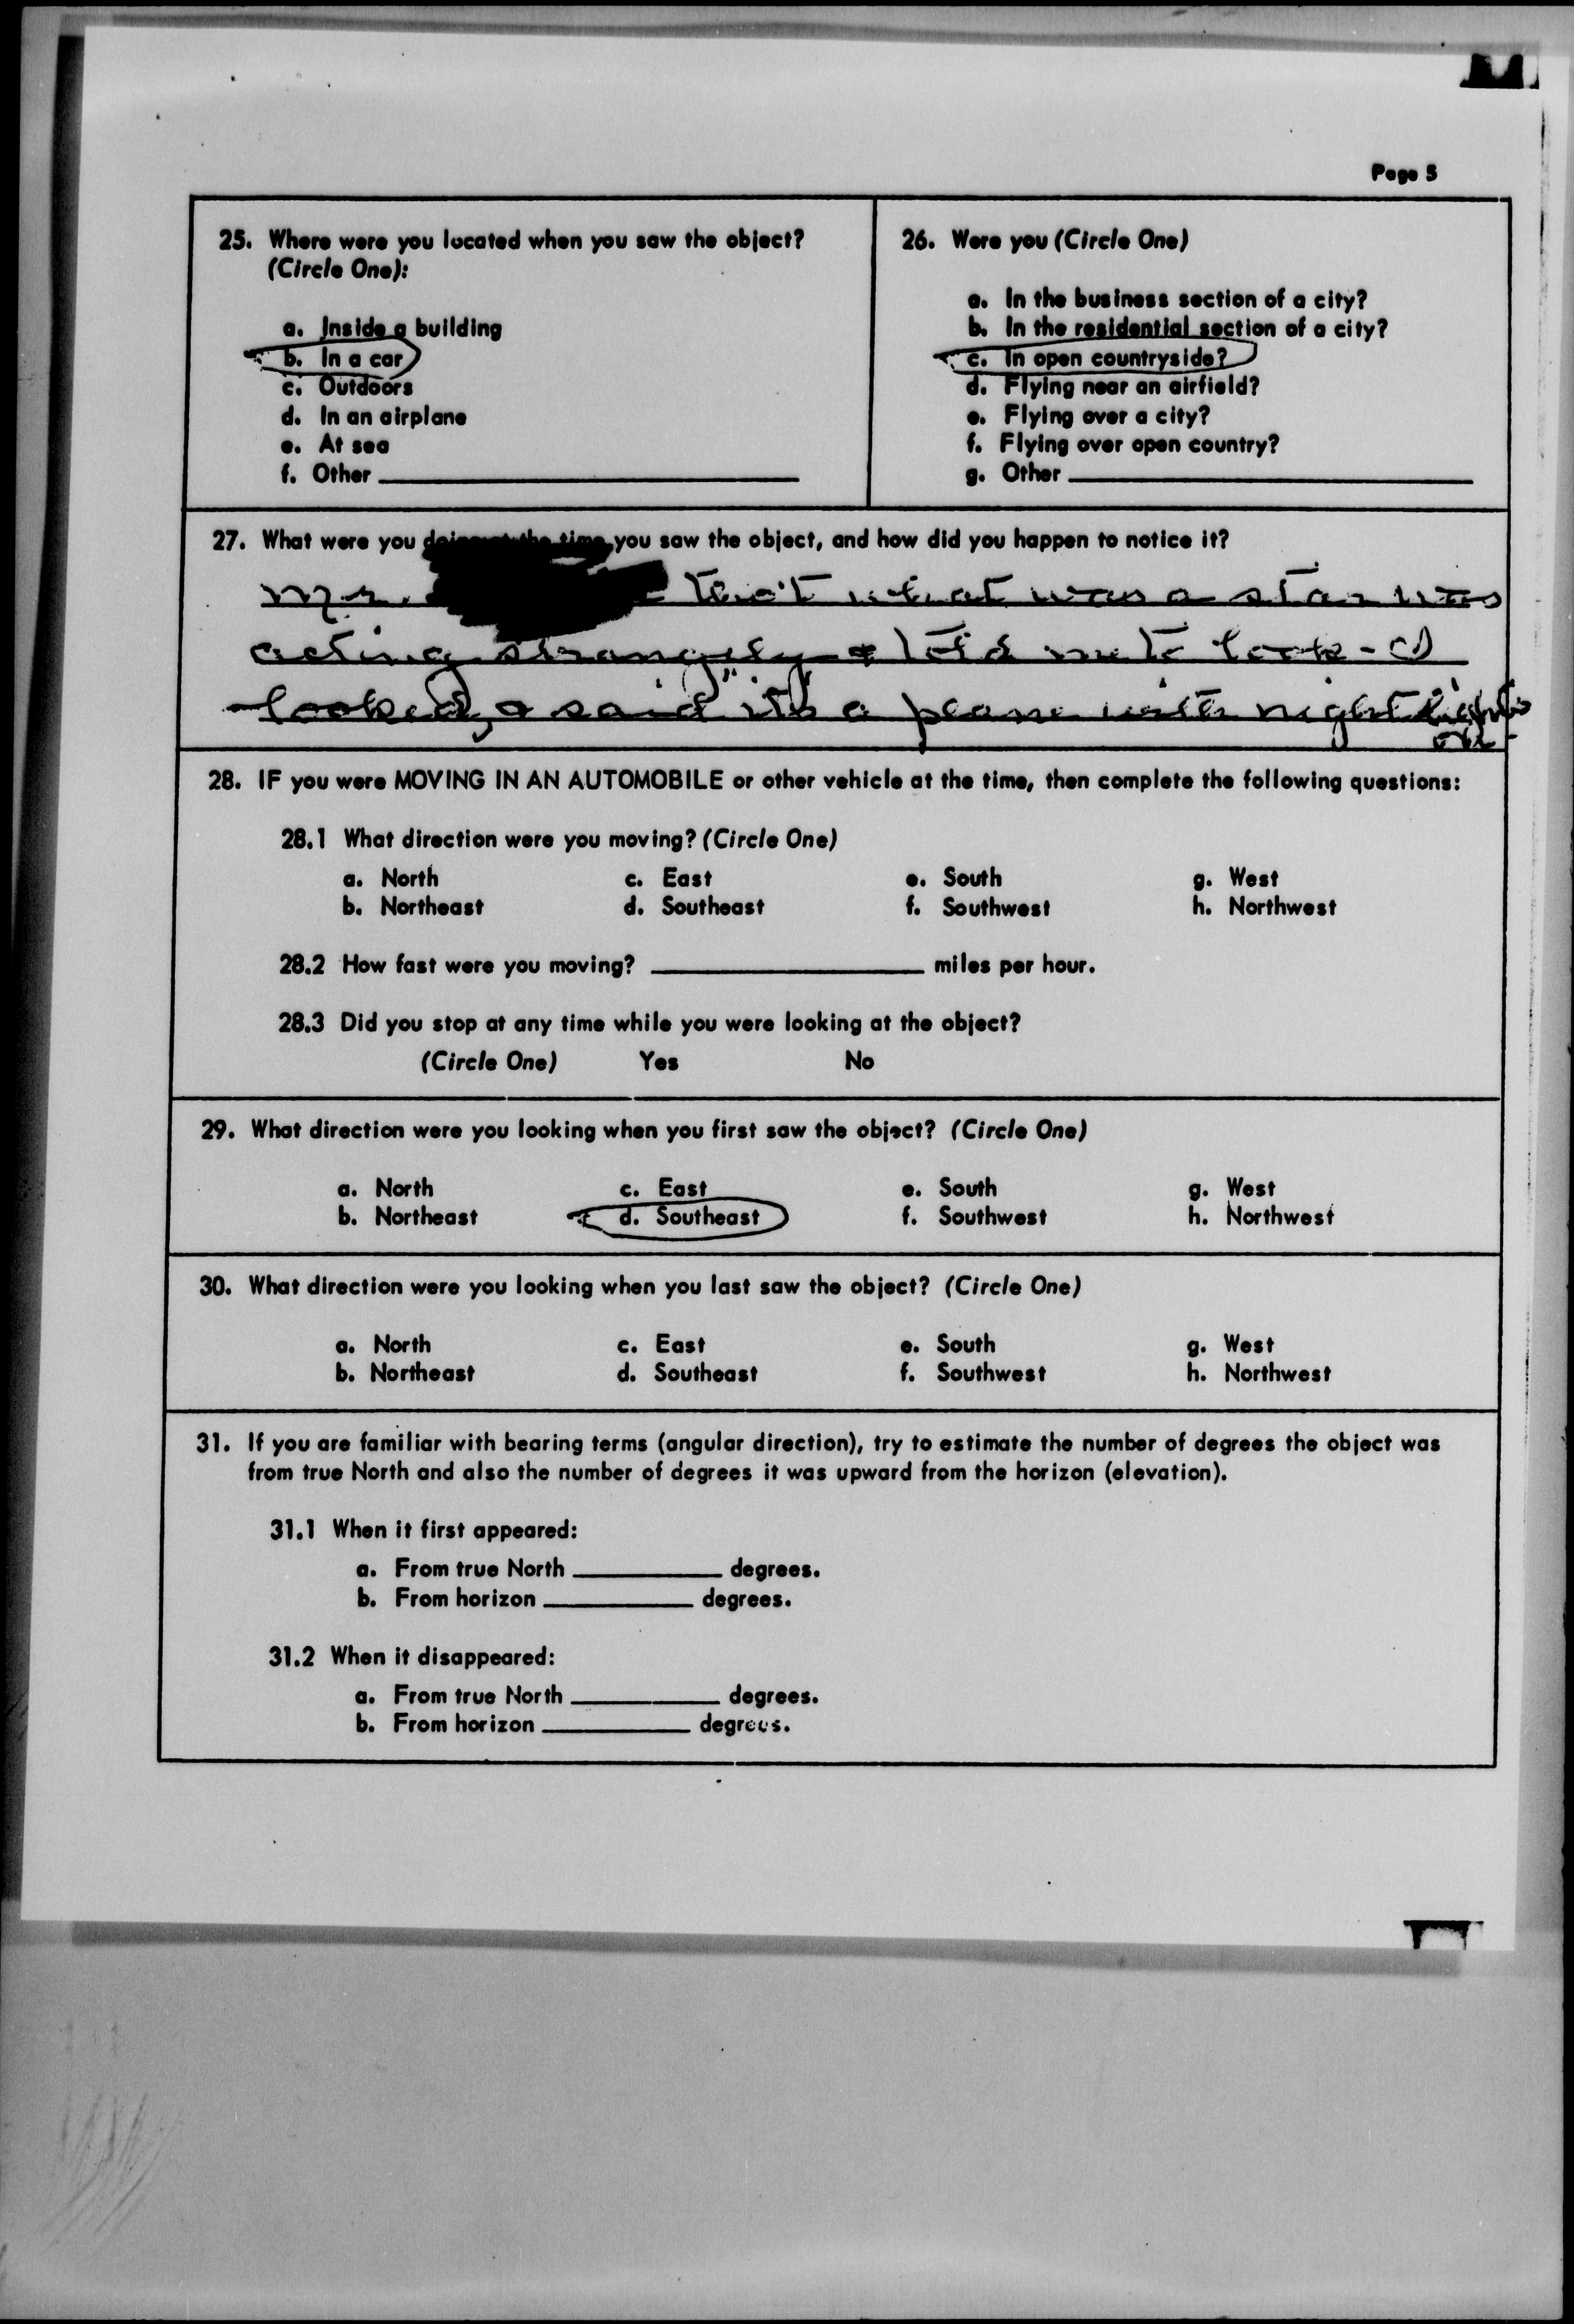 Page 5
25. Where were you located when you saw the object?
(Circle One):
a. Inside a building
b. In a car
c. Outdoors
d. In an airplane
e. At sea
f. Other
26. Were you (Circle One)
a. In the business section of a city?
b. In the residential section of a city?
c. In open countryside?
d. Flying near an airfield?
e. Flying over a city?
f. Flying over open country?
g. Other
27. What were you doing at the time you saw the object, and how did you happen to notice it?
Mr. tho't what was a star was
acting strangely & told me to look - I
looked, & said "its a plane with night lights
on"
28. IF you were MOVING IN AN AUTOMOBILE or other vehicle at the time, then complete the following questions:
28.1 What direction were you moving? (Circle One)
a. North c. East e. South g. West
b. Northeast d. Southeast f. Southwest h. Northwest
28.2 How fast were you moving? miles per hour.
28.3 Did you stop at any time while you were looking at the object?
(Circle One) Yes No
29. What direction were you looking when you first saw the object? (Circle One)
a. North c. East e. South g. West
b. Northeast d. Southeast f. Southwest h. Northwest
30. What direction were you looking when you last saw the object? (Circle One)
a. North c. East e. South g. West
b. Northeast d. Southeast f. Southwest h. Northwest
31. If you are familiar with bearing terms (angular direction), try to estimate the number of degrees the object was
from true North and also the number of degrees it was upward from the horizon (elevation).
31.1 When it first appeared:
a. From true North degrees.
b. From horizon degrees.
31.2 When it disappeared:
a. From true North degrees.
b. From horizon degrees.